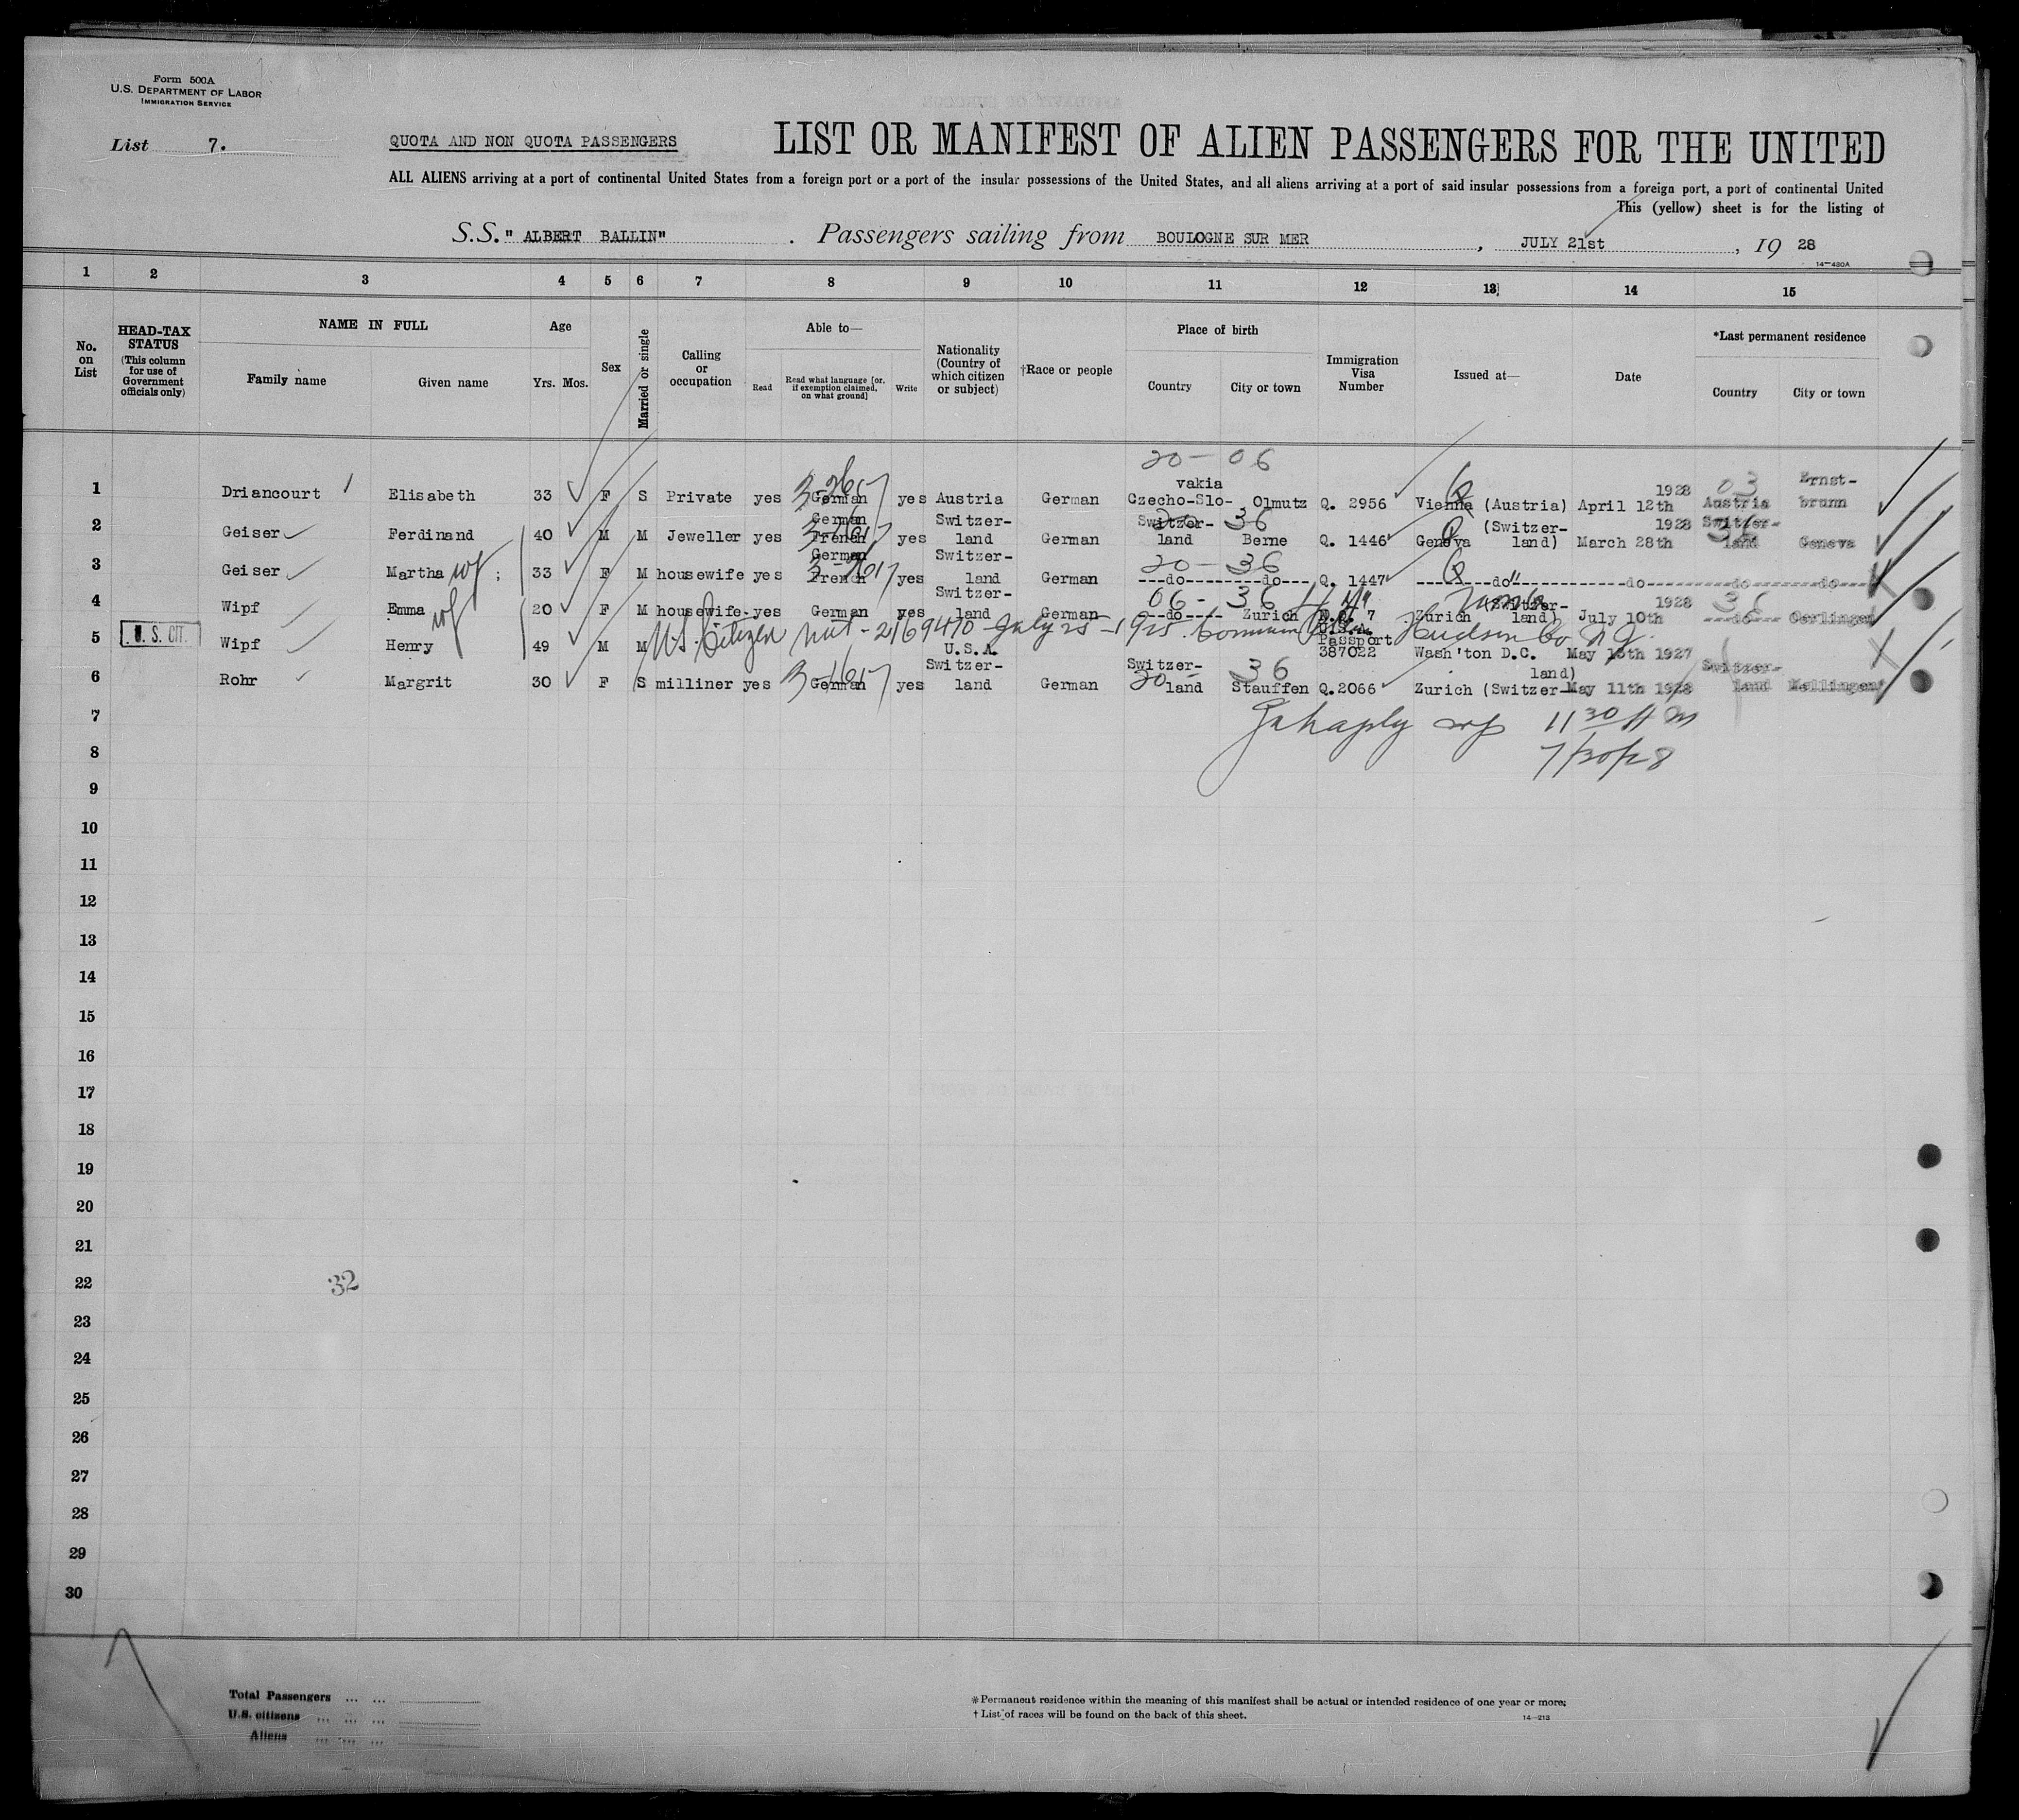 Form 500A
U.S. DEPARTMENT OF LABOR
IMMIGRATION SERVICE
List 7.
QUOTA AND NON QUOTA PASSENGERS
LIST OR MANIFEST OF ALIEN PASSENGERS FOR THE UNITED
ALL ALIENS arriving at a port of continental United States from a foreign port or a port of the insular possessions of the United States, and all aliens arriving at a port of said insular possessions from a foreign port, a port of continental United
This (yellow) sheet is for the listing of
S.S. "ALBERT BALLIN". Passengers sailing from BOULOGNE SUR MER, JULY 21st, 19 28
14—480A
1 2 3 4 5 6 7 8 9 10 11 12 13 14 15
No. on List
HEAD-TAX STATUS (This column for use of Government officials only)
NAME IN FULL
Family name
Given name
Age
Yrs. Mos.
Sex
Married or single
Calling or occupation
Able to—
Read
Read what language [or, if exemption claimed, on what ground]
Write
Nationality (Country of which citizen or subject)
†Race or people
Place of birth
Country
City or town
Immigration Visa Number
Issued at—
Date
*Last permanent residence
Country
City or town
20 - 06
1 Driancourt Elisabeth 33 F S Private yes German yes Austria German Czecho-Slovakia Olmutz Q. 2956 Vienna (Austria) April 12th 1928 03 Austria Ernstbrunn
2 Geiser Ferdinand 40 M M Jeweller yes German French yes Switzer-land German Switzer-land 36 Berne Q. 1446 Geneva (Switzer-land) March 28th 1928 Switzer-land Geneva
20 - 36
3 Geiser Martha wf 33 F M housewife yes German French yes Switzer-land German ---do--------do--- Q. 1447 --------do"------------do---------do--------do---
06 - 36
4 Wipf Emma wf 20 F M housewife yes German yes Switzer-land German ---do---- Zurich 7 Zurich (Switzer-land) July 10th 1928 36 ---do--- Oerlingen
5 U. S. CIT. Wipf Henry 49 M M US Citizen Nat - 2169470 July 25 - 1925 Hudson Co N.J.
U.S.A. Passport 387022 Wash'ton D.C. May 13th 1927
6 Rohr Margrit 30 F S milliner yes German yes Switzer-land German Switzer-land 20 36 Stauffen Q.2066 Zurich (Switzer-land) May 11th 1928 Switzer-land Mellingen
11 30 AM
7/30/28
7
8
9
10
11
12
13
14
15
16
17
18
19
20
21
22
32
23
24
25
26
27
28
29
30
Total Passengers ... ...
U.S. citizens ... ... ...
Aliens ... ... ...
*Permanent residence within the meaning of this manifest shall be actual or intended residence of one year or more.
†List of races will be found on the back of this sheet.
14—213